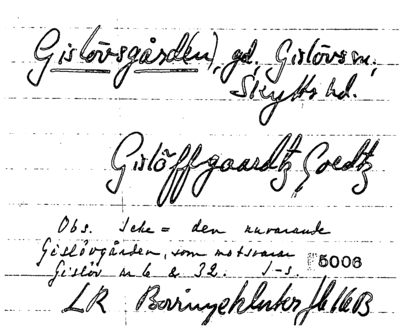 Gislövsgården), gd, Gislövs sn,
Skytts hd.
Gislöffgaardtz Goedtz
Obs. Icke = den nuvarande
Gislövgården, som motsvarar
Gislöv nr 6 & 32. J-s.
5006
LR